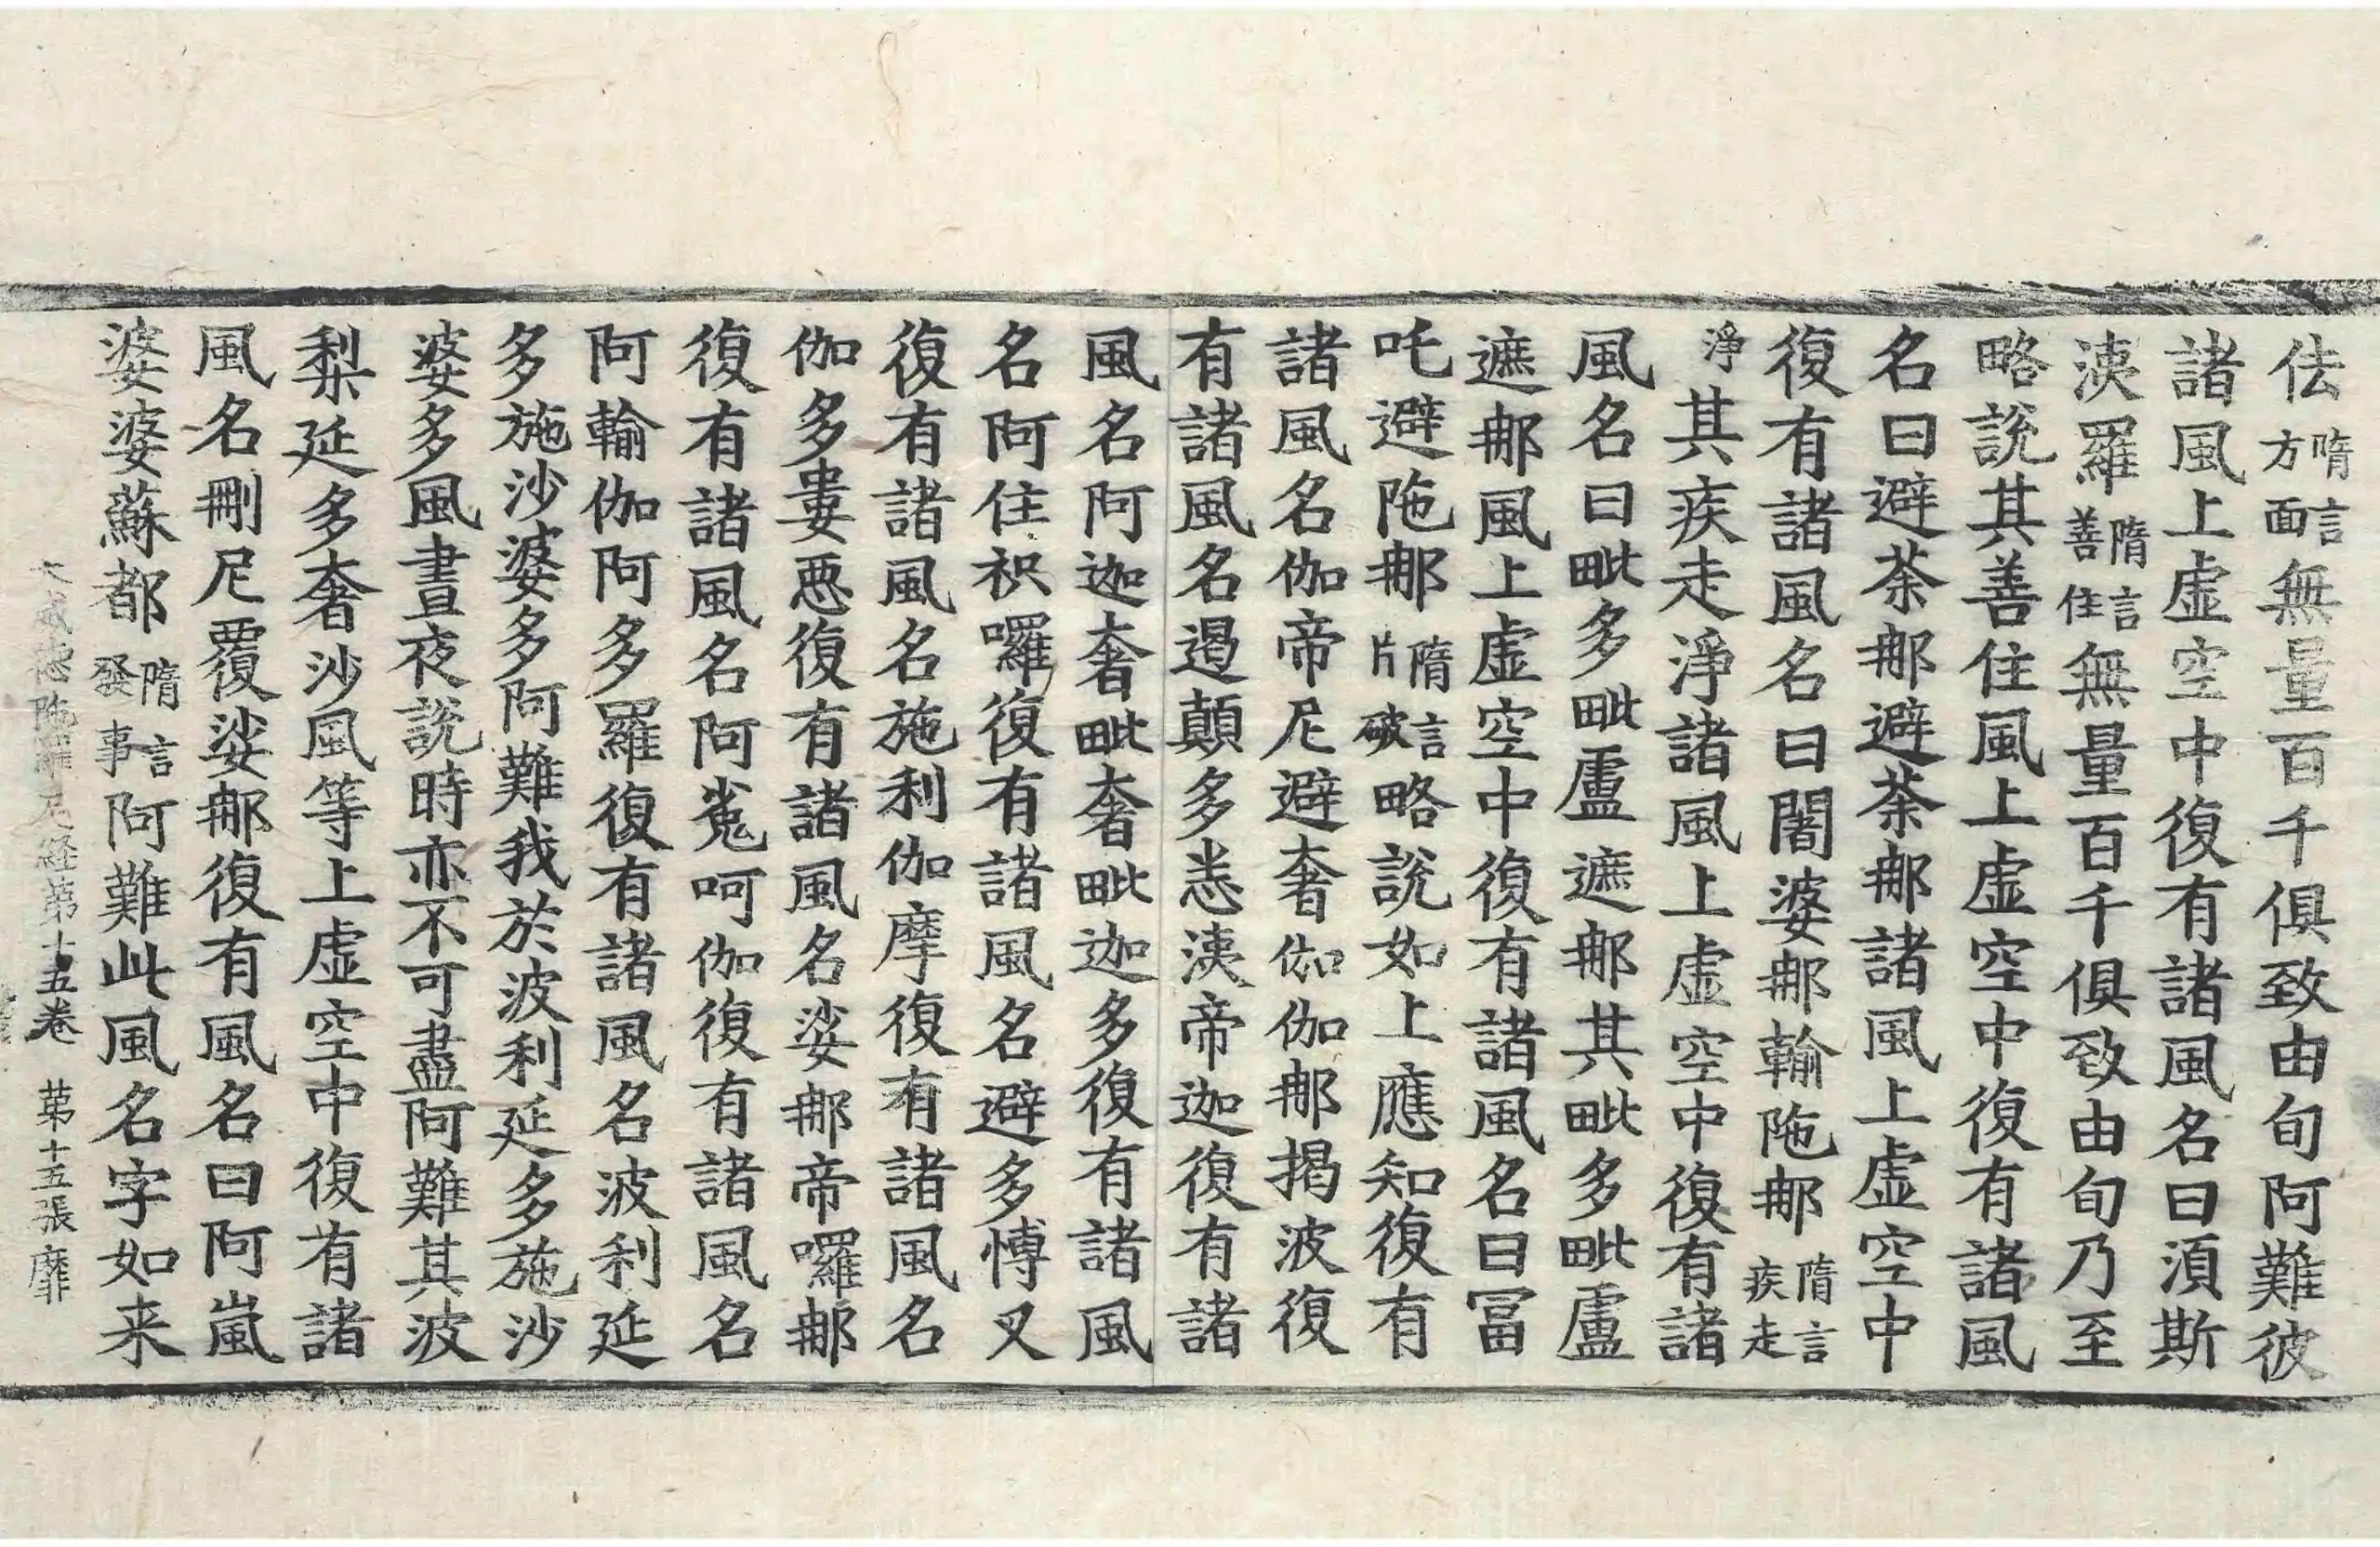 佉隋言方面無量百千俱致由旬阿難彼
諸風上虛空中復有諸風名曰湏斯
洟羅隋言善住無量百千俱致由旬乃至
略說其善住風上虛空中復有諸風
名曰避荼那避荼那諸風上虛空中
復有諸風名曰闍婆那輸陁那隋言疾走
淨其疾走淨諸風上虛空中復有諸
風名曰毗多毗盧遮那其毗多毗盧
遮那風上虛空中復有諸風名曰冨
吒避陁那隋言片破略說如上應知復有
諸風名伽帝尼避奢伽伽那揭波復
有諸風名遏顛多恙洟帝迦復有諸
風名阿迦奢毗奢毗迦多復有諸風
名阿住祇囉復有諸風名避多愽叉
復有諸風名施利伽摩復有諸風名
伽多婁悪復有諸風名娑那帝囉那
復有諸風名阿嵬呵伽復有諸風名
阿輸伽阿多羅復有諸風名波利延
多施沙婆多阿難我於波利延多施沙
婆多風晝夜說時亦不可盡阿難其波
梨延多奢沙風等上虛空中復有諸
風名刪尼覆娑那復有風名曰阿嵐
婆婆蘇都隋言發事阿難此風名字如来
大威德陁羅尼経第十五卷 第十五張 靡